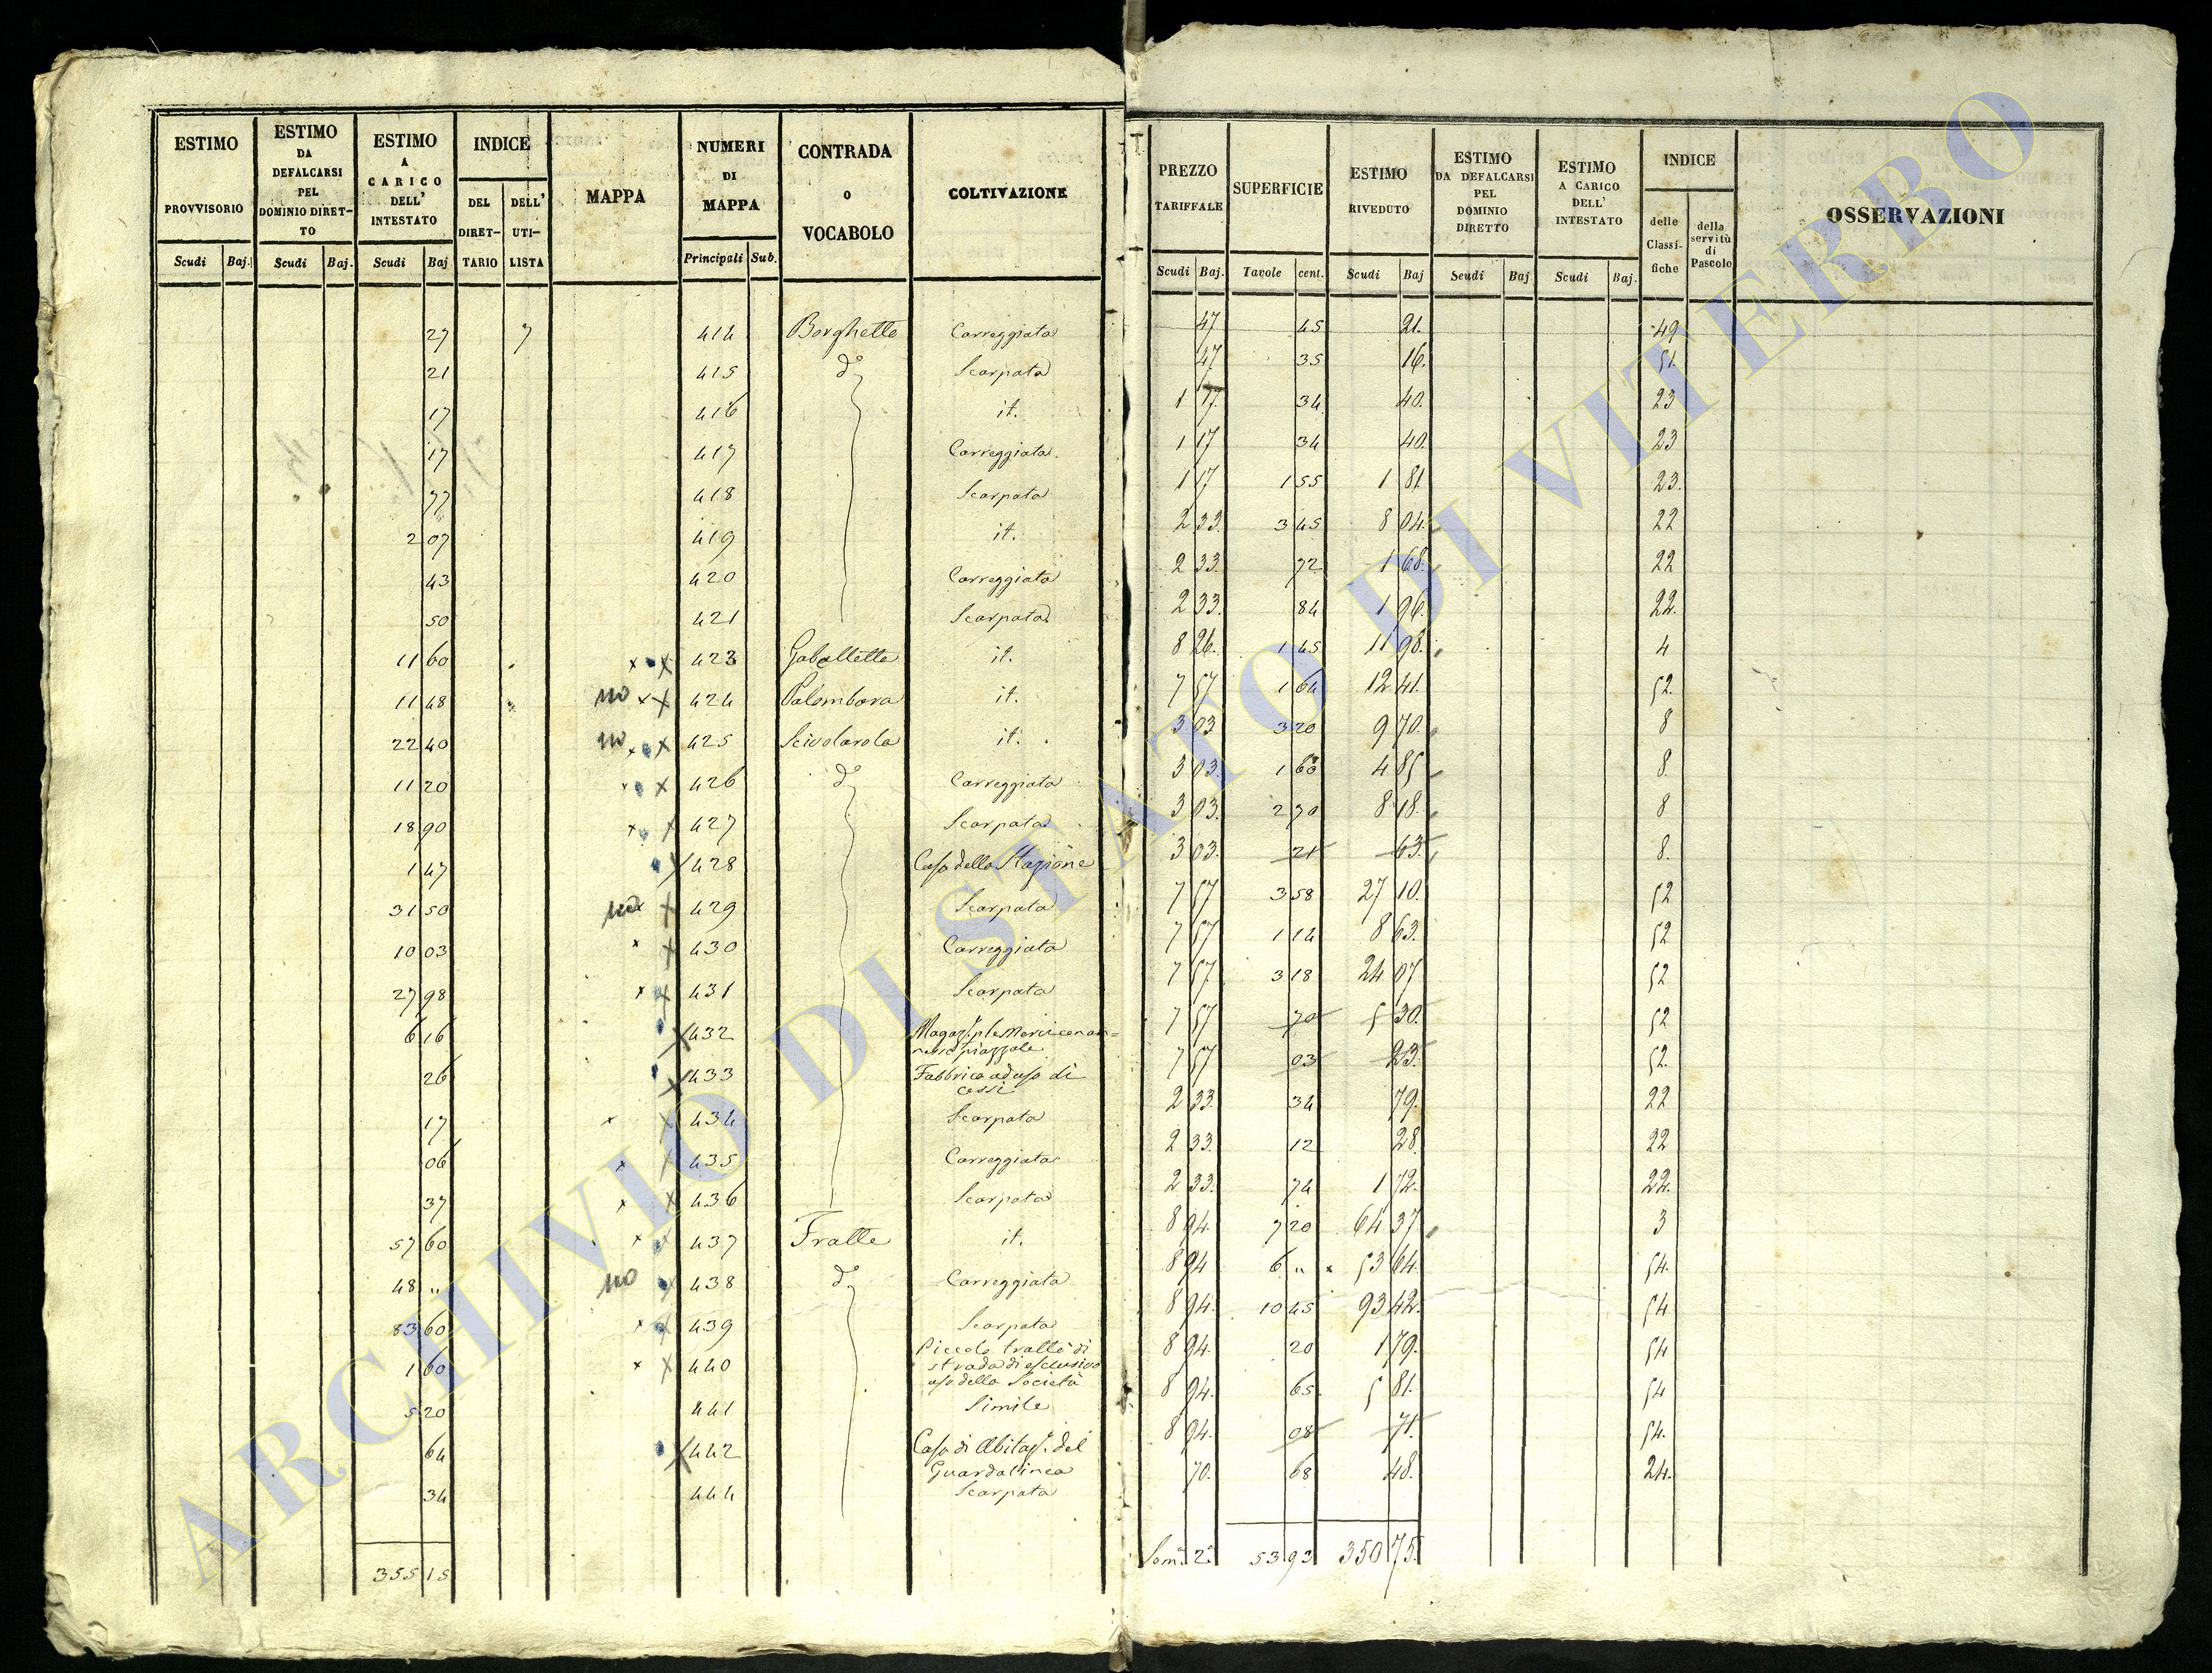 ESTIMO PROVVISORIO | ESTIMO DA DEFALCARSI PEL DOMINIO DIRET-TO | ESTIMO A CARICO DELL' INTESTATO | INDICE | MAPPA | NUMERI DI MAPPA | CONTRADA o VOCABOLO | COLTIVAZIONE | PREZZO TARIFFALE | SUPERFICIE | ESTIMO RIVEDUTO | ESTIMO DA DEFALCARSI PEL DOMINIO DIRETTO | ESTIMO A CARICO DELL' INTESTATO | INDICE | OSSERVAZIONI
DEL DIRET-TARIO | DELL' UTI-LISTA | delle Classi-fiche | della servitù di Pascolo
Scudi | Baj. | Scudi | Baj. | Scudi | Baj | Principali | Sub. | Scudi | Baj. | Tavole | cent. | Scudi | Baj | Scudi | Baj | Scudi | Baj.
27 | 7 | 414 | Borghetto | Carreggiata | 47 | 45 | 21. | 49
21 | 415 | d° | Scarpata | 47 | 35 | 16. | 51.
17 | 416 | it. | 1 17 | 34 | 40. | 23
17 | 417 | Carreggiata. | 1 17 | 34 | 40. | 23
77 | 418 | Scarpata | 1 17 | 1 55 | 1 81 | 23.
2 07 | 419 | it. | 2 33. | 3 45 | 8 04. | 22
43 | 420 | Carreggiata | 2 33. | 72 | 1 68. | 22
50 | 421 | Scarpata | 2 33. | 84 | 1 96. | 22.
11 60 | x x | 423 | Gabelletta | it. | 8 26. | 1 45 | 11 98. | 4
11 48 | no x x | 424 | Palombara | it. | 7 57 | 1 64 | 12 41. | 52.
22 40 | no x x | 425 | Scivolarola | it. | 3 03 | 3 20 | 9 70. | 8
11 20 | x x | 426 | d° | Carreggiata | 3 03. | 1 60 | 4 85 | 8.
18 90 | x x | 427 | Scarpata | 3 03. | 2 70 | 8 18. | 8
1 47 | x | 428 | Casa della Stazione | 3 03. | 21 | 63. | 8.
31 50 | no x x | 429 | Scarpata | 7 57 | 3 58 | 27 10. | 52
10 03 | x x | 430 | Carreggiata | 7 57 | 1 14 | 8 63. | 52
27 98 | x x | 431 | Scarpata | 7 57. | 3 18 | 24 07 | 52
6 16 | x | 432 | Magaz. p. le Merci con an=nesso piazzale | 7 57 | 70 | 5 30. | 52
26 | x | 433 | Fabbrica ad uso di cessi | 7 57 | 03 | 23. | 52.
17 | x x | 434 | Scarpata | 2 33. | 34 | 79. | 22
06 | x x | 435 | Carreggiata | 2 33. | 12 | 28. | 22
37 | x x | 436 | Scarpata | 2 33. | 74 | 1 72. | 22.
57 60 | x x | 437 | Fratte | it. | 8 94. | 7 20 | 64 37. | 3
48 „ | no x | 438 | d° | Carreggiata | 8 94 | 6 „ | 53 64. | 54.
83 60 | x x | 439 | Scarpata | 8 94. | 10 45 | 93 42. | 54
1 60 | x x | 440 | Piccolo tratto di strada di esclusivo uso della Società | 8 94. | 20 | 1 79. | 54
5 20 | 441 | Simile | 8 94. | 65. | 5 81. | 54
64 | x | 442 | Casa di Abitaz. del Guardalinea | 8 94. | 08 | 71. | 54.
34 | 444 | Scarpata | 70. | 68 | 48. | 24.
355 15 | Som. 2ª | 53 93 | 350 75.
ARCHIVIO DI STATO DI VITERBO